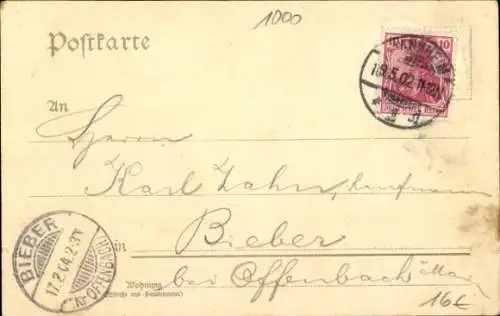 1000
Postkarte
10
18.5.02. 11-12V
An
Herrn
Karl Jahn, Kaufmann
Bieber
in
bei Offenbach a/Main
BIEBER
17.2.04. 2-3N
(Kr. OFFENBACH)
Wohnung
(Straße und Hausnummer)
16€